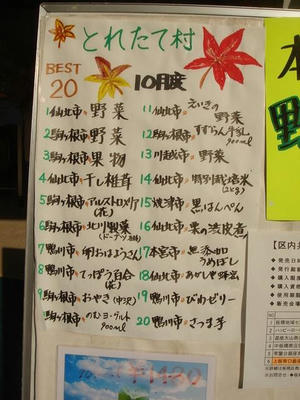 とれたて村
BEST
20
10月度
1 仙北市・野菜
2 駒ヶ根市・野菜
3 駒ヶ根市・果物
4 仙北市・干し椎茸
5 駒ヶ根市・アルストロメリア
(花)
6 駒ヶ根市・北川製菓
(ドーナツ 3種)
7 鴨川市・卵(おはようさん)
8 鴨川市・てっぽう百合
(花)
9 駒ヶ根市・おやき(中沢)
9 駒ヶ根市・のむヨーグルト
900ml
11 仙北市・えいきの
野菜
12 駒ヶ根市・すずらん牛乳
900ml
13 川越市・野菜
14 仙北市・特別栽培米
15 焼津市・黒はんぺん
16 仙北市・栗の渋皮煮
17 本宮市・無添加
うめぼし
18 仙北市・あかしや蜂蜜
19 鴨川市・びわゼリー
20 鴨川市・さつま芋
【区内共